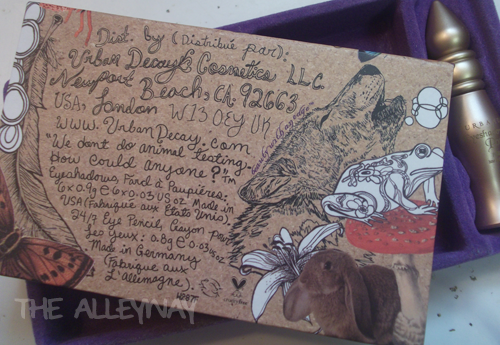 Dist. by (Distribué par):
Urban Decay® Cosmetics LLC.
Newport Beach, CA. 92663
USA, London W13 0EY UK
www.UrbanDecay.com
"We don't do animal testing.
How could anyone?"™
Eyeshadows, Fard à Paupières:
6 x 0.9g e 6 x 0.03 US oz. Made in
USA (Fabriqué aux États Unis)
24/7 Eye Pencil, Crayon pour
Les Yeux: 0.8g e 0.03 US oz
Made in Germany
(Fabriqué aux
L'allemagne).
THE ALLEYNAY